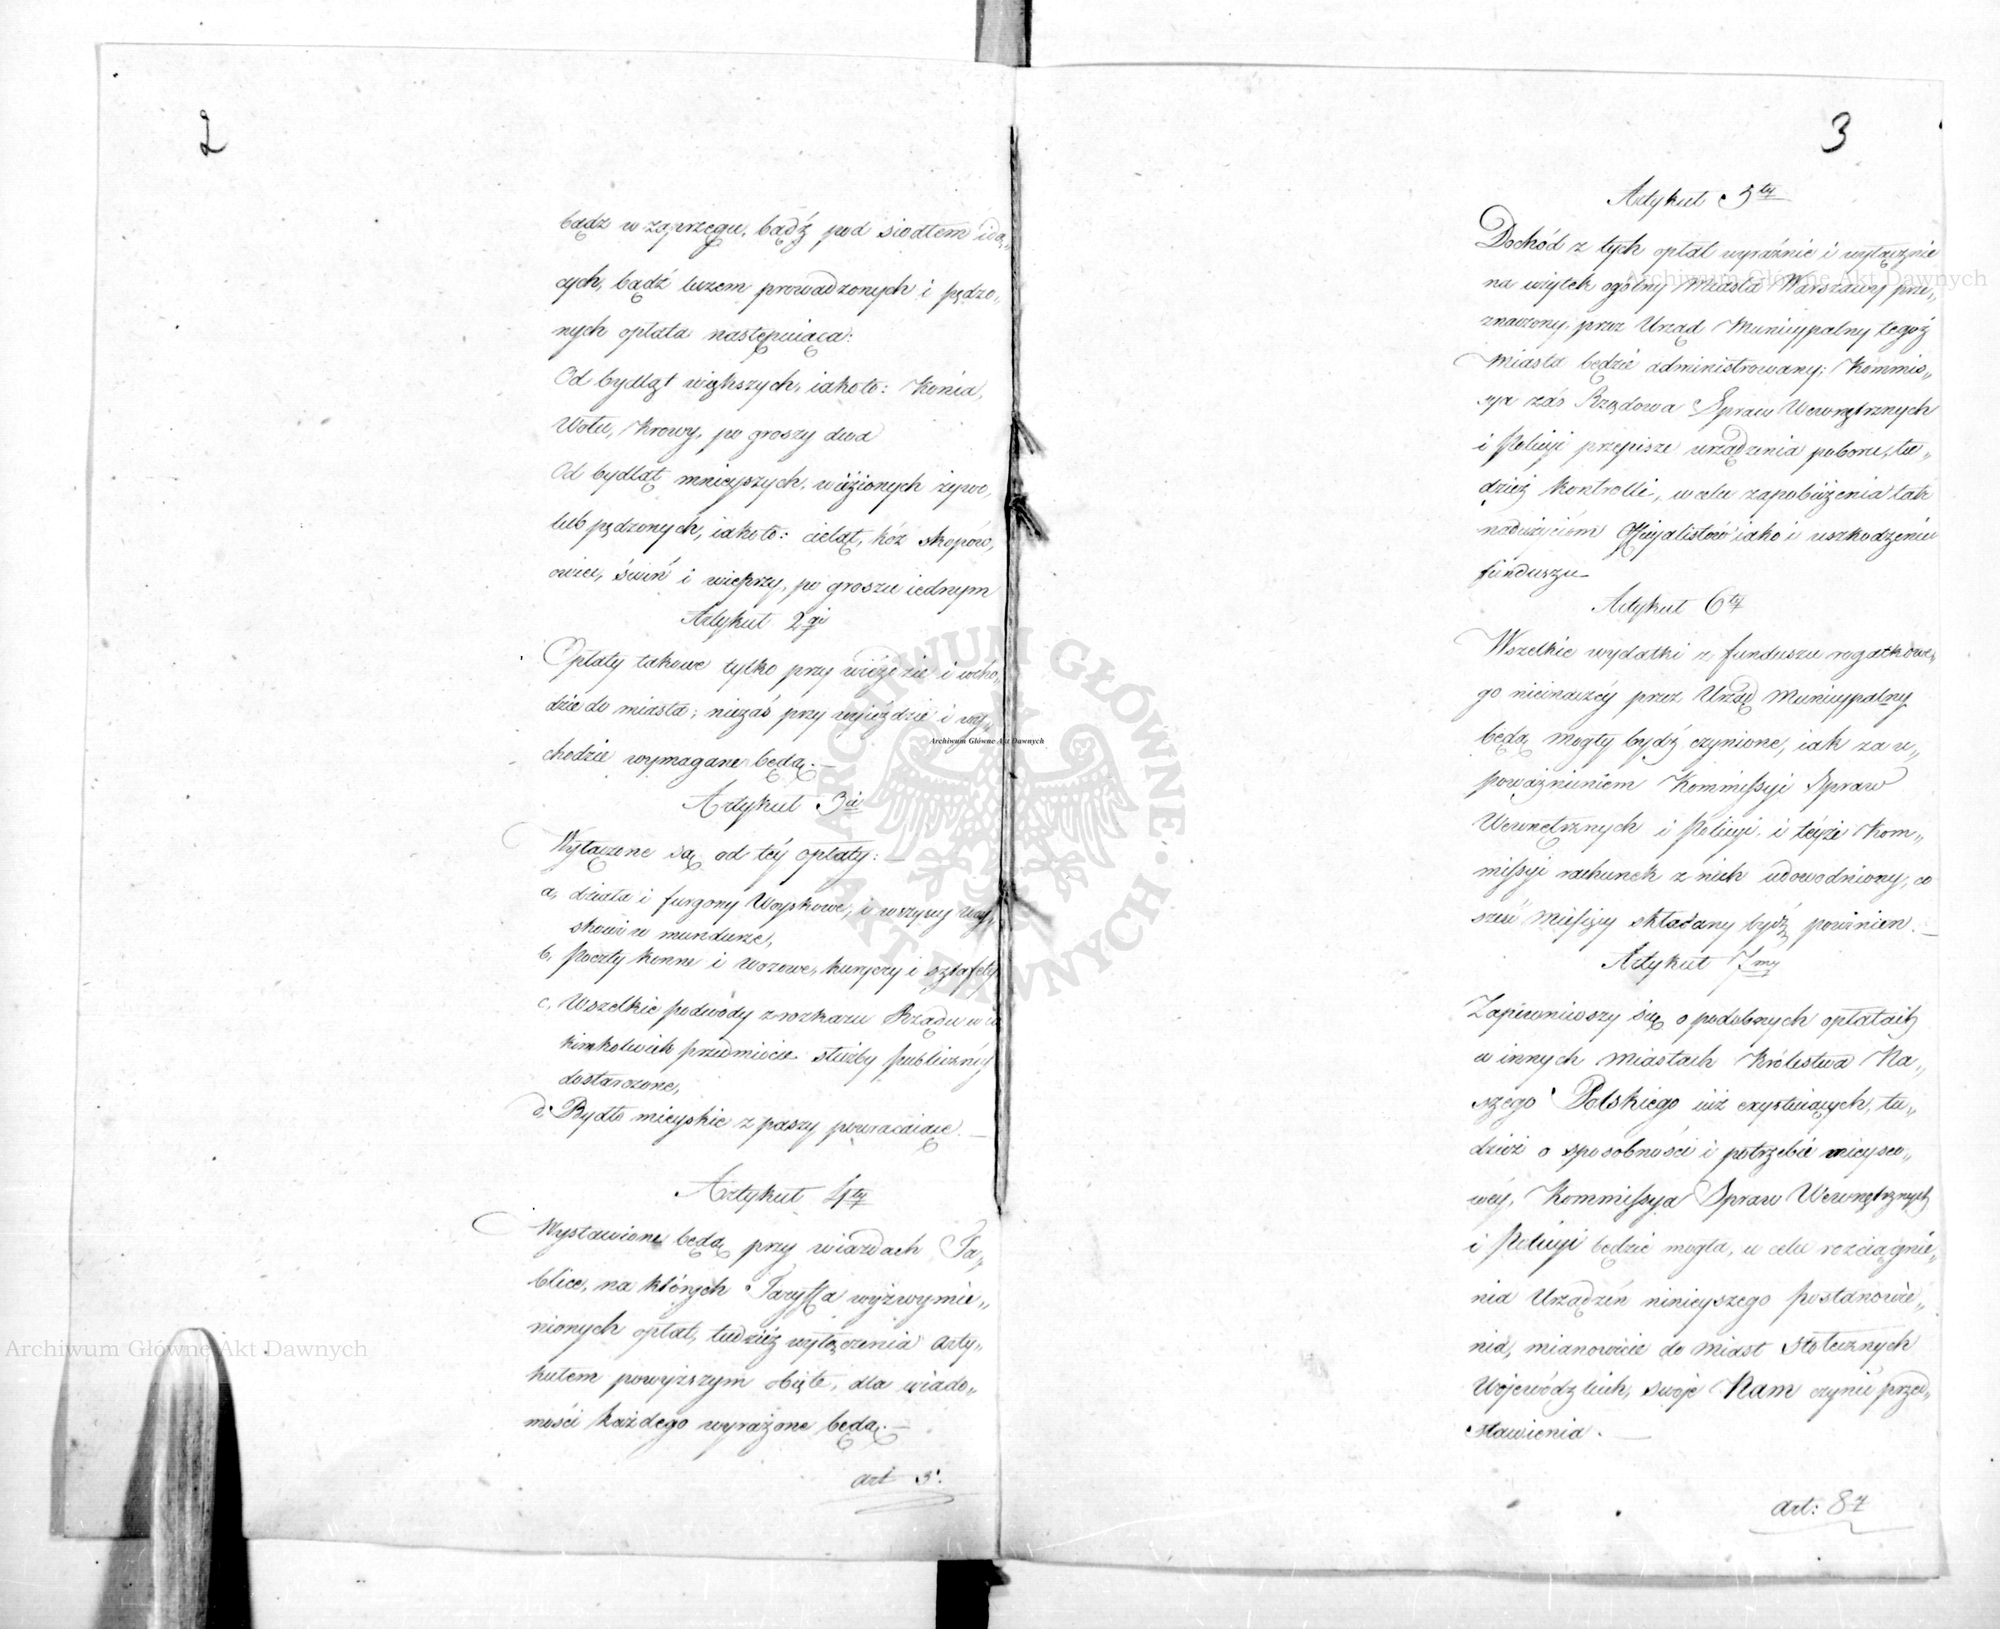 2
bądz w zaprzęgu, bądź pod siodłem idą„
cych, bądź luzem prowadzonych i pędzo„
nych opłata następuiąca:
Od bydląt większych, iakoto: Konia,
Wołu, Krowy, po groszy dwa
Od bydląt mnieyszych, wiezionych żywo,
lub pędzonych, iakoto: cieląt, kóz skopów,
owiec, świń i wieprzy, po groszu iednym
Artykuł 2gi
Opłaty takowe tylko przy wieździe i wcho„
dzie do miasta; niezaś przy wyieździe i wy„
chodzie wymagane będą. —
Artykuł 3ci
Wyłączone są od téy opłaty: —
a, działa i furgony Woyskowe, i wszyscy Woy„
skowi w mundurze,
b, Poczty konne i wozowe, kuryery i sztafety
c, Wszelkie podwody z rozkazu Rządu w ia
kimkolwiek przedmiocie służby publicznéy
dostarczone,
d, Bydło mieyskie z paszy powracaiące. —
Artykuł 4ty
Wystawione będą przy wiazdach Ta„
blice, na których Taryffa wyżwymie„
nionych opłat, tudzież wyłączenia Arty„
kułem powyższym obięte, dla wiado„
mości każdego wyrażone będą. —
art 5.
3
Artykuł 5ty
Dochód z tych opłat wyraźnie i wyłącznie
na użytek ogólny Miasta Warszawy prze„
znaczony, przez Urząd Municypalny tegoż
Miasta będzie administrowany; Kommis„
sya zaś Rządowa Spraw Wewnętrznych
i Policyi przepisze urządzenia poboru, tu„
dzież kontrolli, w celu zapobieżenia tak
nadużyciom Officyalistów iako i uszkodzeniu
funduszu
Artykuł 6ty
Wszelkie wydatki z funduszu rogatkowe„
go nieinaczéy przez Urząd Municypalny
będą mogły bydź czynione, iak za u„
poważnieniem Kommissyi Spraw
Wewnętrznych i Policyi, i téyże Kom„
missyi rachunek z nich udowodniony, co
sześć Miesięcy składany bydź powinien. —
Artykuł 7my
Zapewniwszy się o podobnych opłatach
w innych Miastach Królestwa Na„
szego Polskiego iuż exystuiących, tu„
dzież o sposobności i potrzebie mieysco„
wéy, Kommissya Spraw Wewnętrznych
i Policyi będzie mogła, w celu rozciągnie„
nia Urządzeń ninieyszego Postanowie„
nia, mianowicie do Miast Stołecznych
Wojewódzkich, swoje Nam czynić przed„
stawienia. —
art: 8y
Archiwum Główne Akt Dawnych
Archiwum Główne Akt Dawnych
Archiwum Główne Akt Dawnych
ARCHIWUM GŁÓWNE • AKT DAWNYCH •